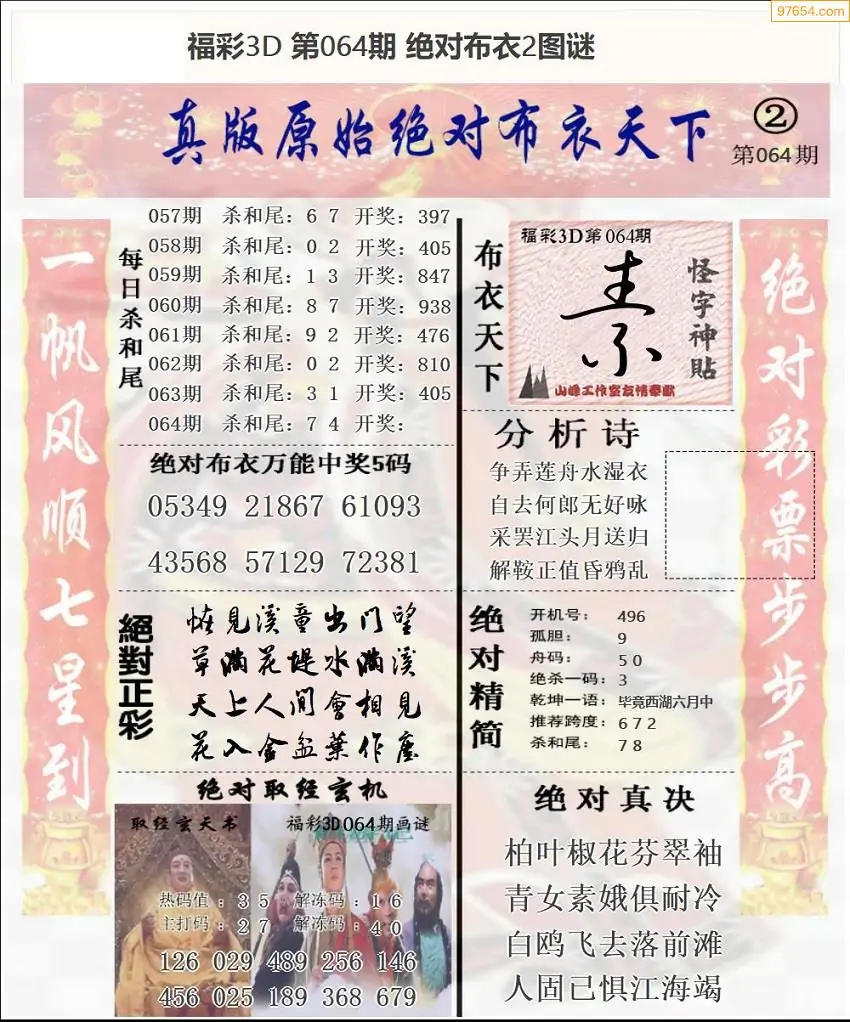 97654.com
福彩3D 第064期 绝对布衣2图谜
真版原始绝对布衣天下
②
第064期
一帆风顺七星到
每日杀和尾
057期 杀和尾：6 7 开奖：397
058期 杀和尾：0 2 开奖：405
059期 杀和尾：1 3 开奖：847
060期 杀和尾：8 7 开奖：938
061期 杀和尾：9 2 开奖：476
062期 杀和尾：0 2 开奖：810
063期 杀和尾：3 1 开奖：405
064期 杀和尾：7 4 开奖：
绝对布衣万能中奖5码
05349 21867 61093
43568 57129 72381
絕對正彩
怪見溪童出门望
草满花堤水满溪
天上人间會相見
花入金盆葉作塵
绝对取经玄机
取经玄天书
福彩3D064期画谜
热码值：3 5 解冻码：1 6
主打码：2 7 解冻码：4 0
126 029 489 256 146
456 025 189 368 679
布衣天下
福彩3D第064期
怪字神貼
山峰工作室友情奉献
分析诗
争弄莲舟水湿衣
自去何郎无好咏
采罢江头月送归
解鞍正值昏鸦乱
绝对精简
开机号： 496
孤胆： 9
舟码： 5 0
绝杀一码：3
乾坤一语：毕竟西湖六月中
推荐跨度：6 7 2
杀和尾： 7 8
绝对真决
柏叶椒花芬翠袖
青女素娥俱耐冷
白鸥飞去落前滩
人固已惧江海竭
绝对彩票步步高